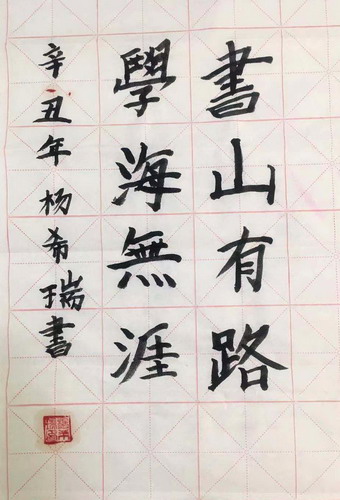 書山有路
學海無涯
辛丑年杨希瑞書